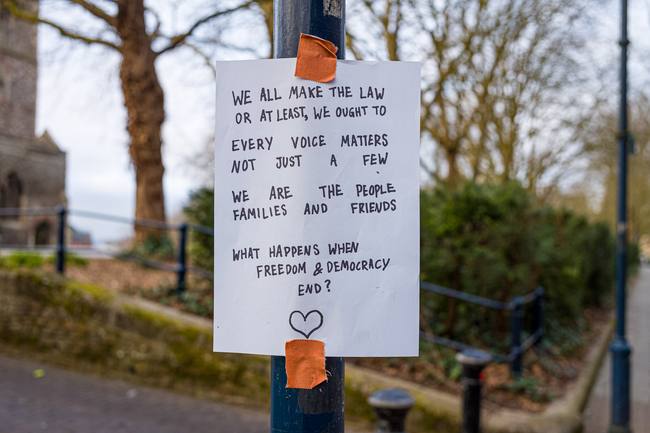 WE ALL MAKE THE LAW
OR AT LEAST, WE OUGHT TO
EVERY VOICE MATTERS
NOT JUST A FEW
WE ARE THE PEOPLE
FAMILIES AND FRIENDS
WHAT HAPPENS WHEN
FREEDOM & DEMOCRACY
END?